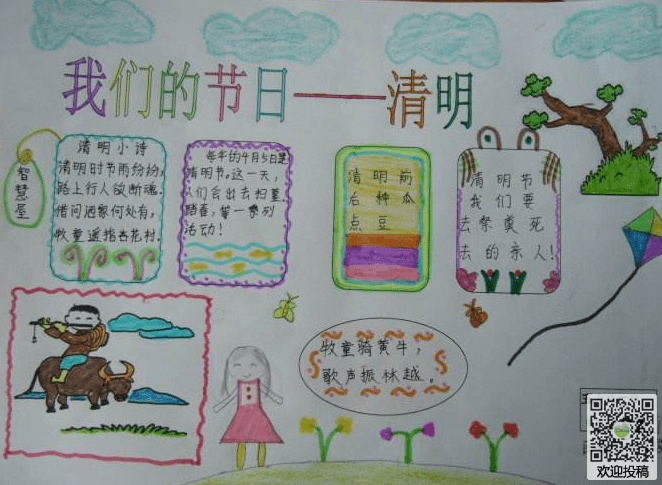 我们的节日——清明
智慧屋
清明小诗
清明时节雨纷纷,
路上行人欲断魂.
借问酒家何处有,
牧童遥指杏花村.
每年的4月5日是
清明节。这一天,
人们会出去扫墓、
踏春,等一系列
活动!
清明前
后种瓜
点豆
清明节
我们要
去祭奠死
去的亲人!
牧童骑黄牛,
歌声振林越。
欢迎投稿